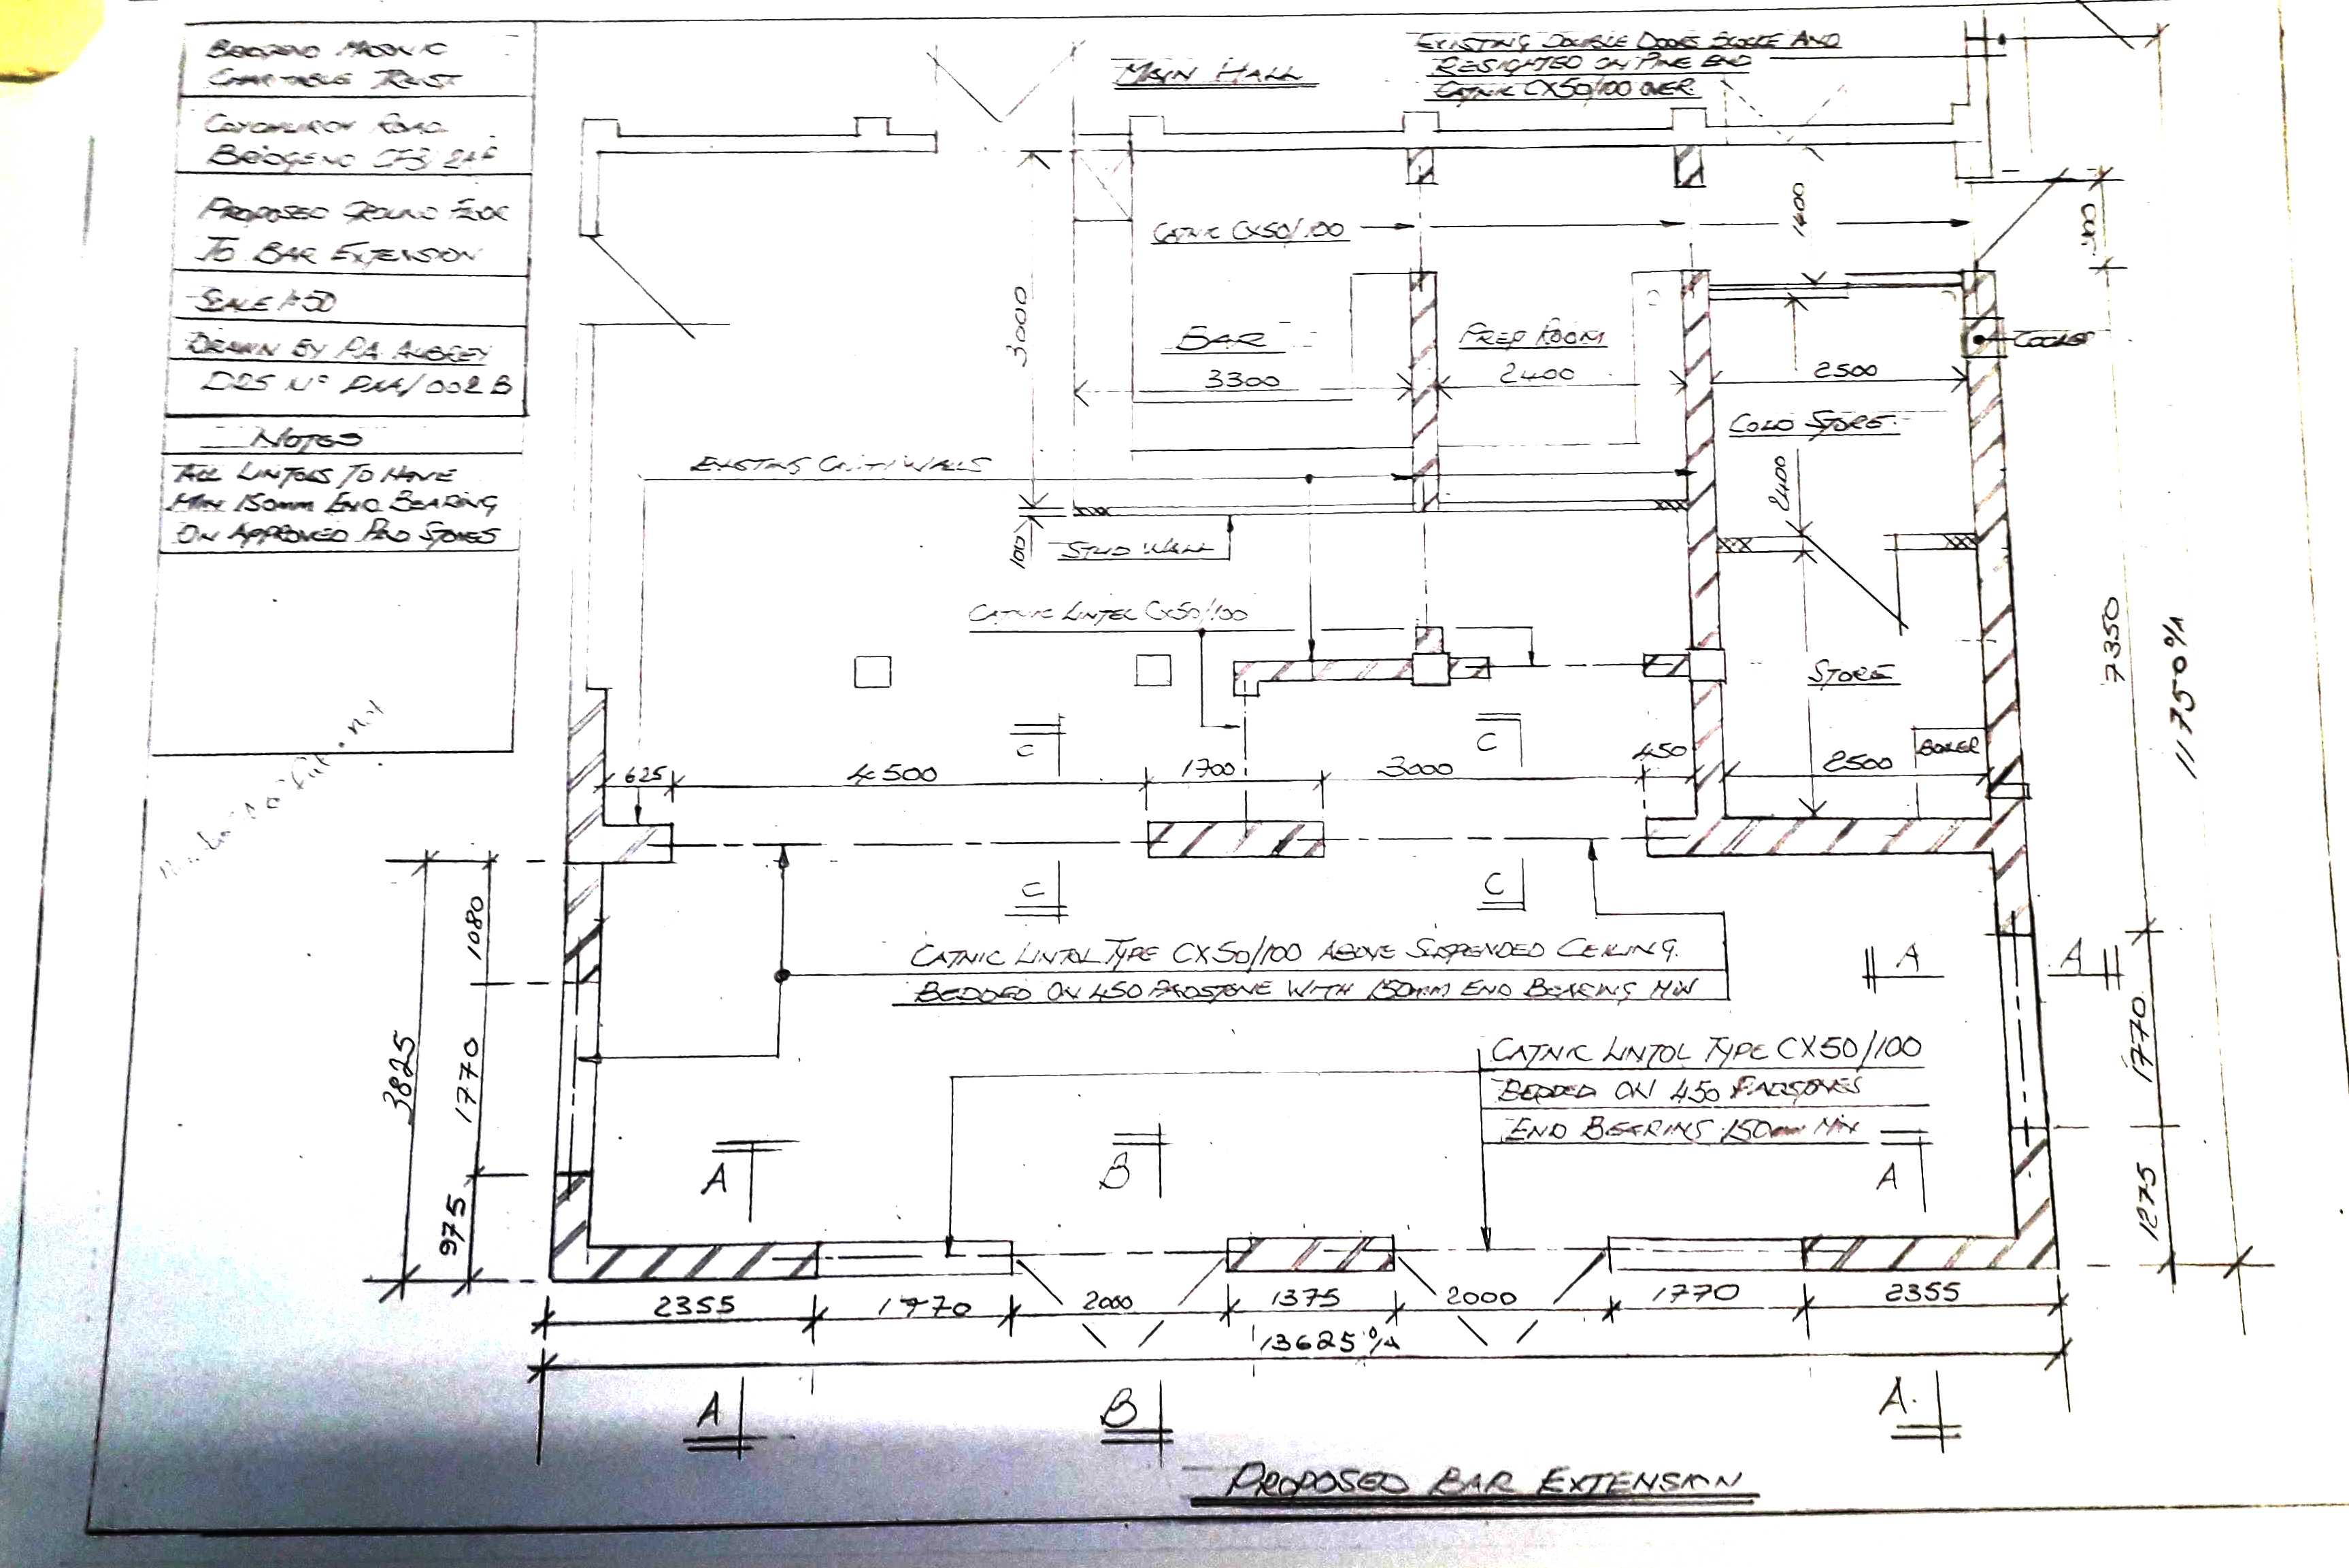 BRIDGEND MASONIC
CHARITABLE TRUST
COYCHURCH ROAD
BRIDGEND
PROPOSED GROUND FLOOR
TO BAR EXTENSION
SCALE 1:50
DRAWN BY P.A. AUBREY
DRG Nº PAA/002B
NOTES
ALL LINTOLS TO HAVE
MIN 150mm END BEARING
ON APPROVED PAD STONES
MAIN HALL
EXISTING DOUBLE DOORS AND
RESIGHTED ON PINE END
CATNIC CX50/100 OVER
CATNIC CX50/100
1400
900
3000
BAR
3300
PREP ROOM
2400
2500
COOLER
COLD STORE
EXISTING CAVITY WALLS
2400
100
STUD WALL
CATNIC LINTEL CX50/100
STORE
7350
11750 O/A
C
C
BOILER
625
4500
1700
3000
450
2500
C
C
1080
CATNIC LINTOL TYPE CX50/100 ABOVE SUSPENDED CEILING.
BEDDED ON 450 PADSTONE WITH 150mm END BEARING MIN
A
A
3825
1770
1770
CATNIC LINTOL TYPE CX50/100
BEDDED ON 450 PADSTONES
END BEARING 150mm MIN
A
B
A
975
1275
2355
1770
2000
1375
2000
1770
2355
13625 O/A
A
B
A.
PROPOSED BAR EXTENSION